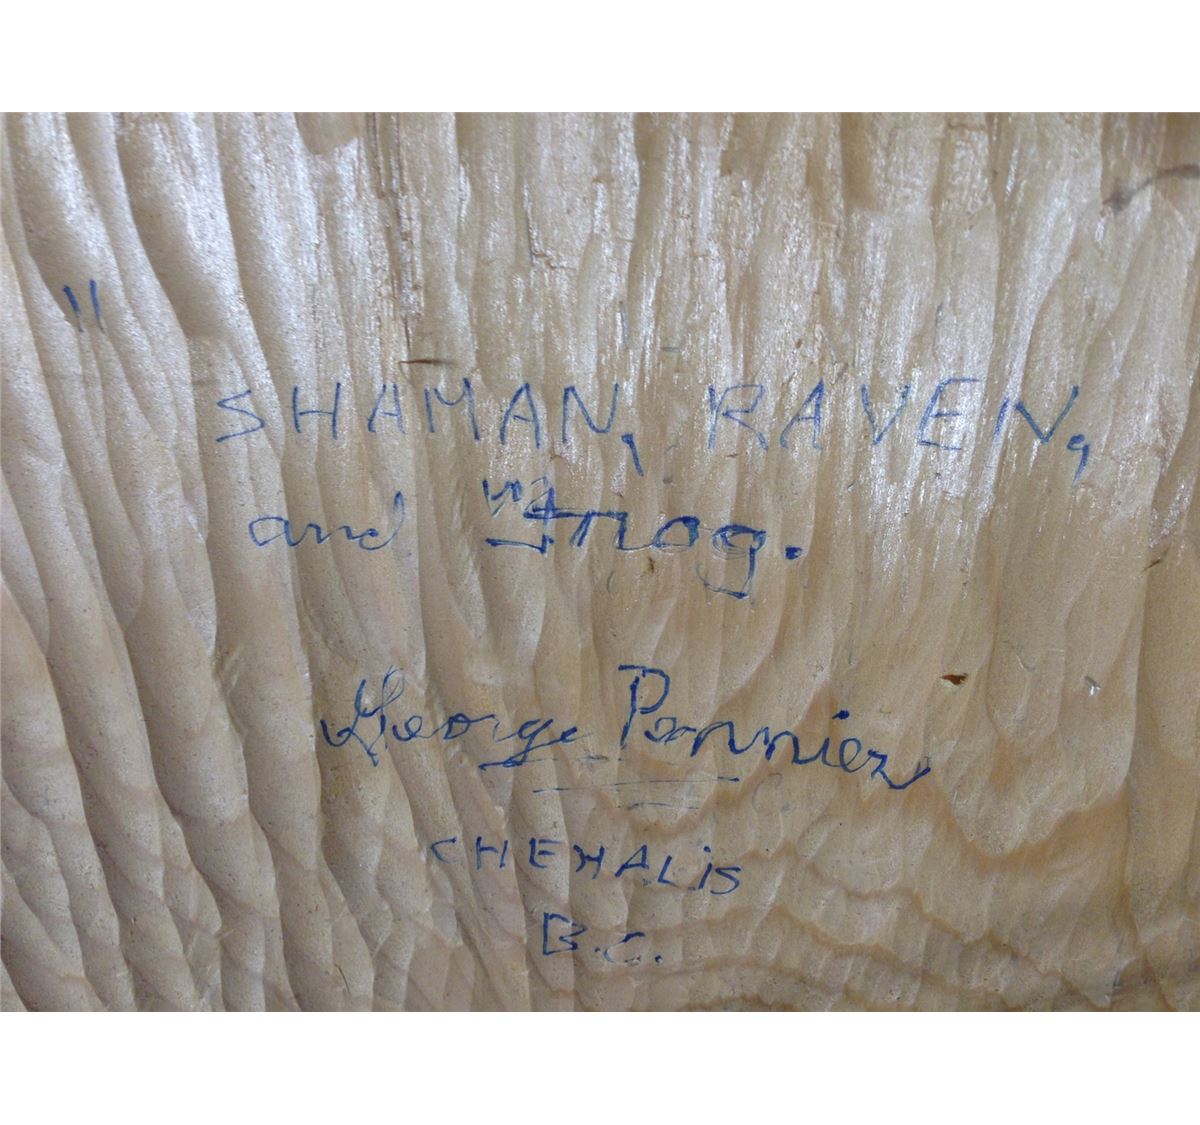 "
SHAMAN, RAVEN,
and Frog.
George Pennier
CHEHALiS
B.C.